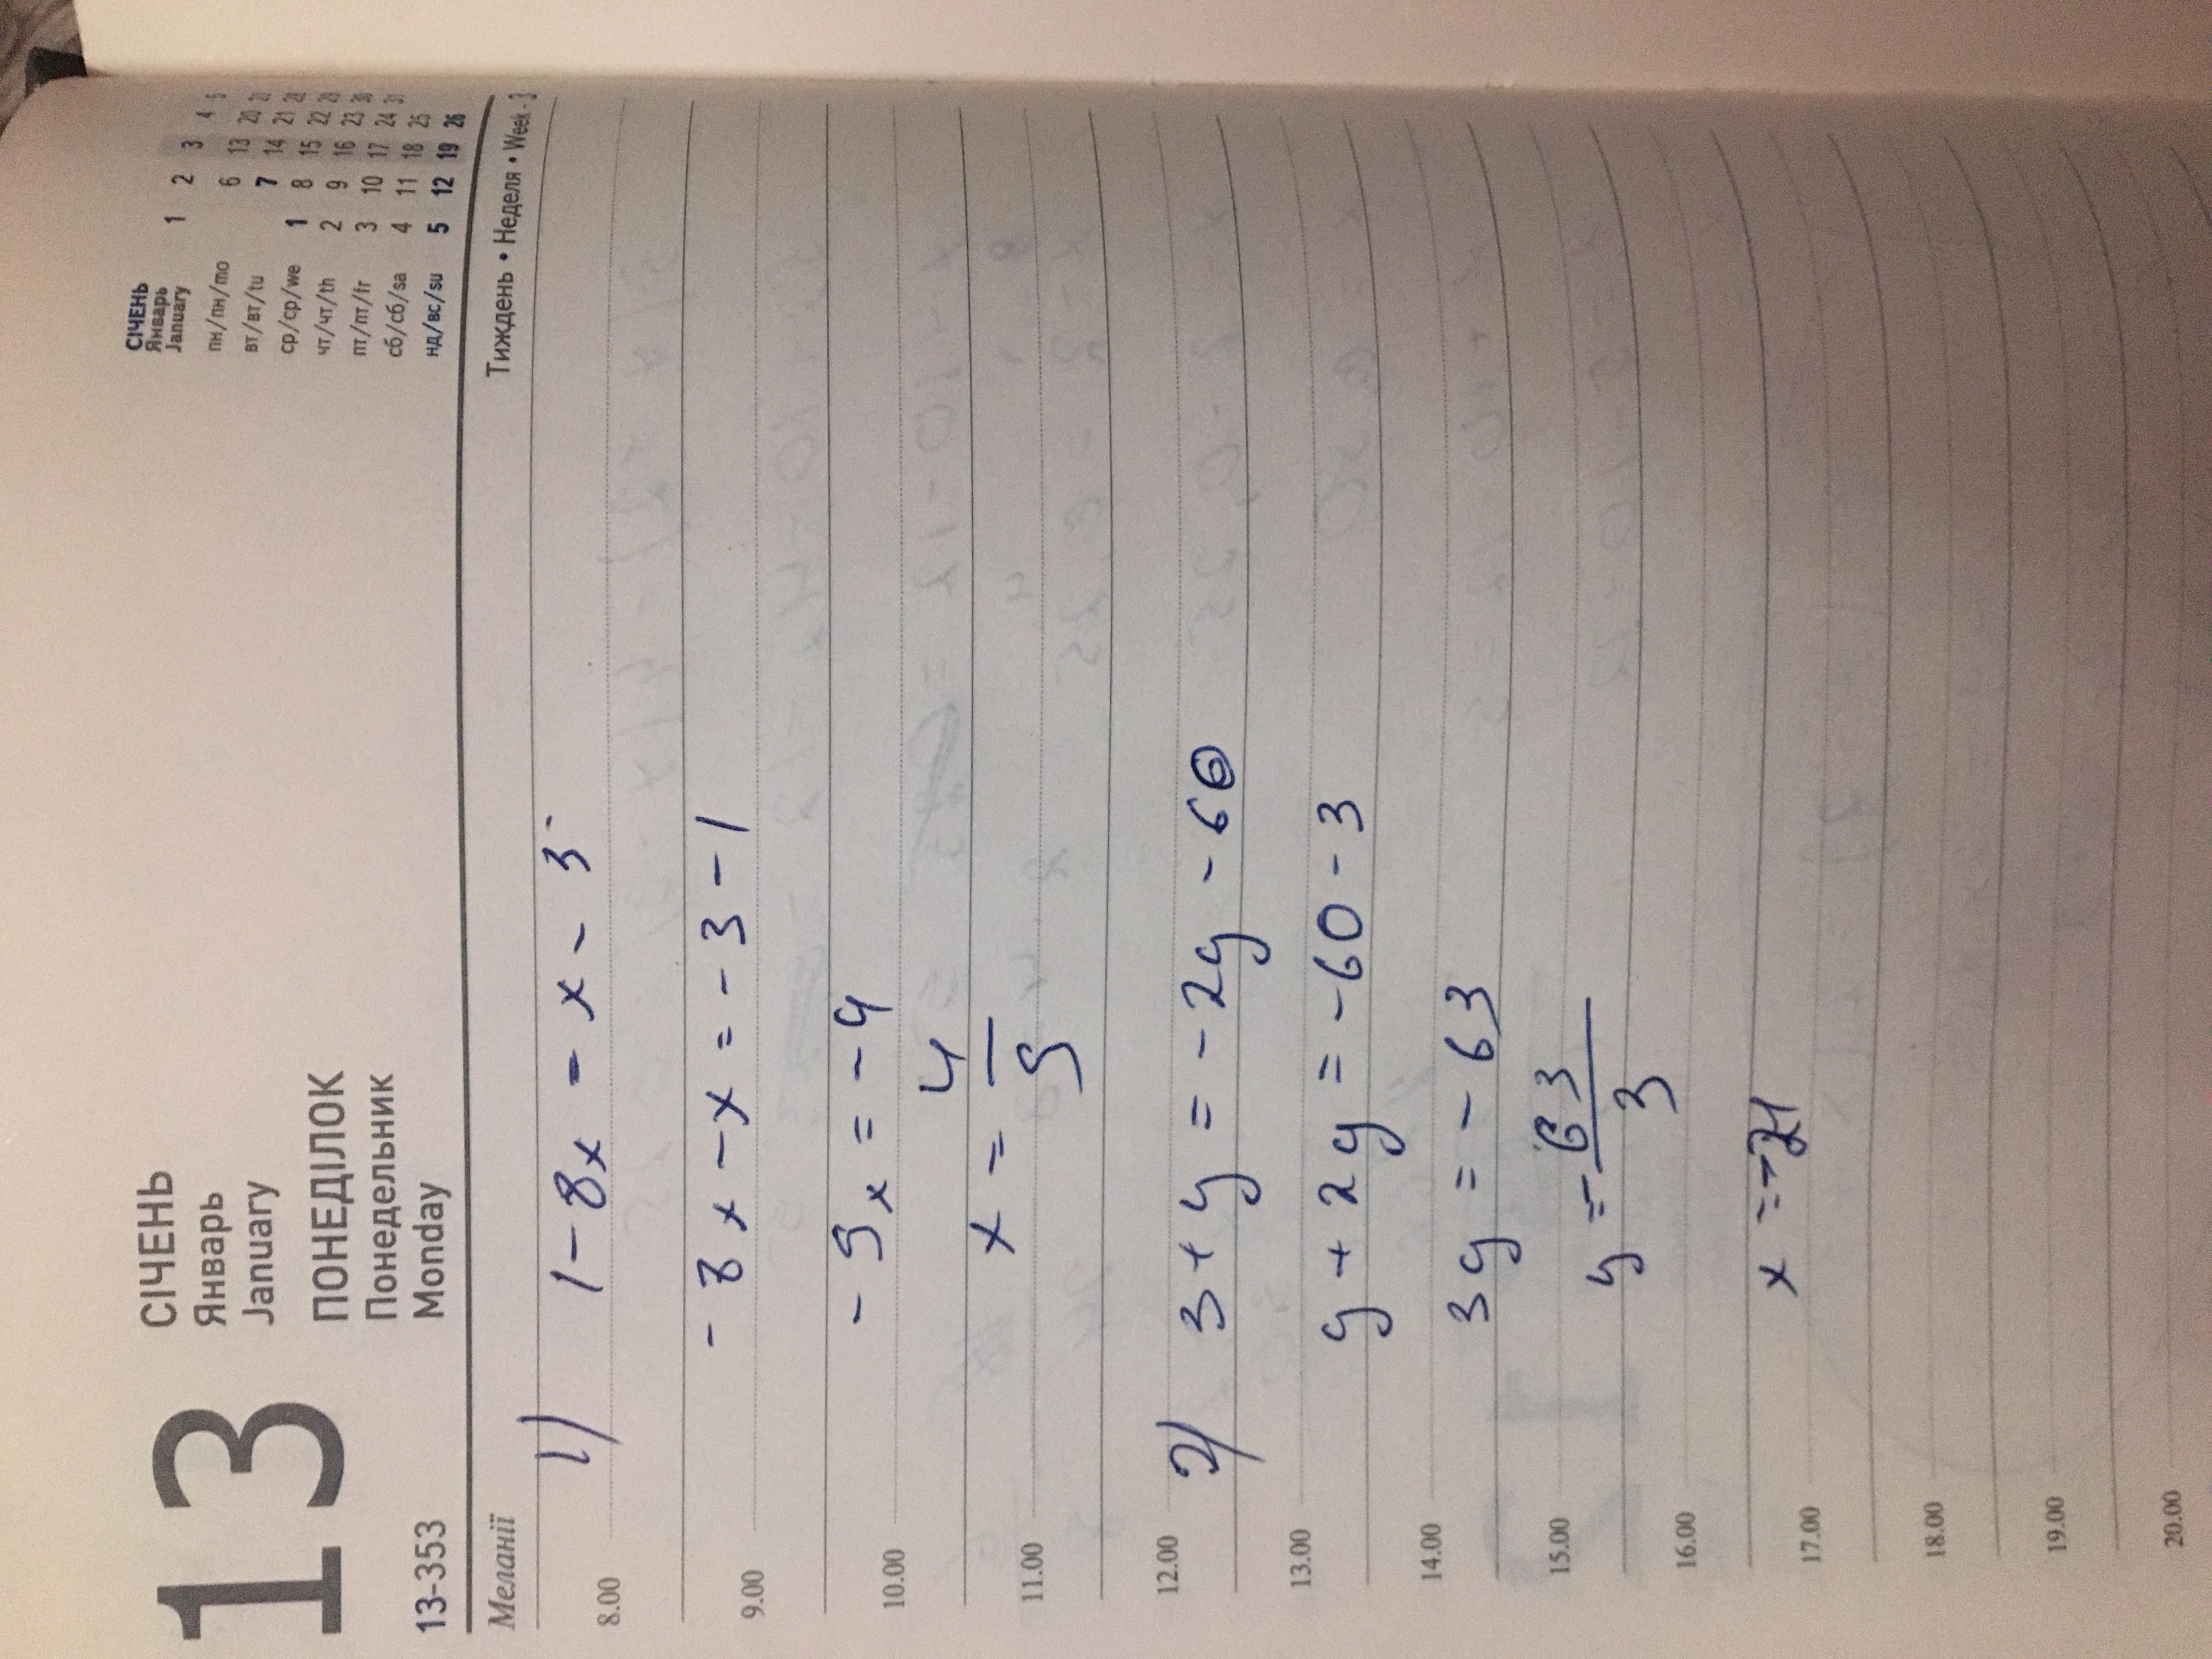 13
СІЧЕНЬ
Январь
January
ПОНЕДІЛОК
Понедельник
Monday
13-353
СІЧЕНЬ
Январь
January
1 2 3 4 5
пн/пн/mo 6 13 20 27
вт/вт/tu 7 14 21 28
ср/ср/we 1 8 15 22 29
чт/чт/th 2 9 16 23 30
пт/пт/fr 3 10 17 24 31
сб/сб/sa 4 11 18 25
нд/вс/su 5 12 19 26
Меланії
Тиждень • Неделя • Week - 3
1) 1 - 8x = x - 3
8.00
- 8x - x = - 3 - 1
9.00
- 9x = - 4
10.00
x = 4/9
11.00
2) 3 + y = - 2y - 60
12.00
y + 2y = - 60 - 3
13.00
3y = - 63
14.00
y = - 63/3
15.00
16.00
x = - 21
17.00
18.00
19.00
20.00